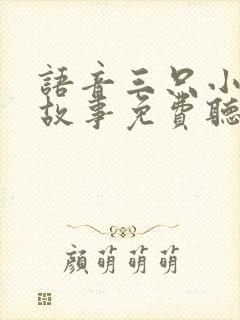 語音三只小
故事免費聽
顏萌萌萌